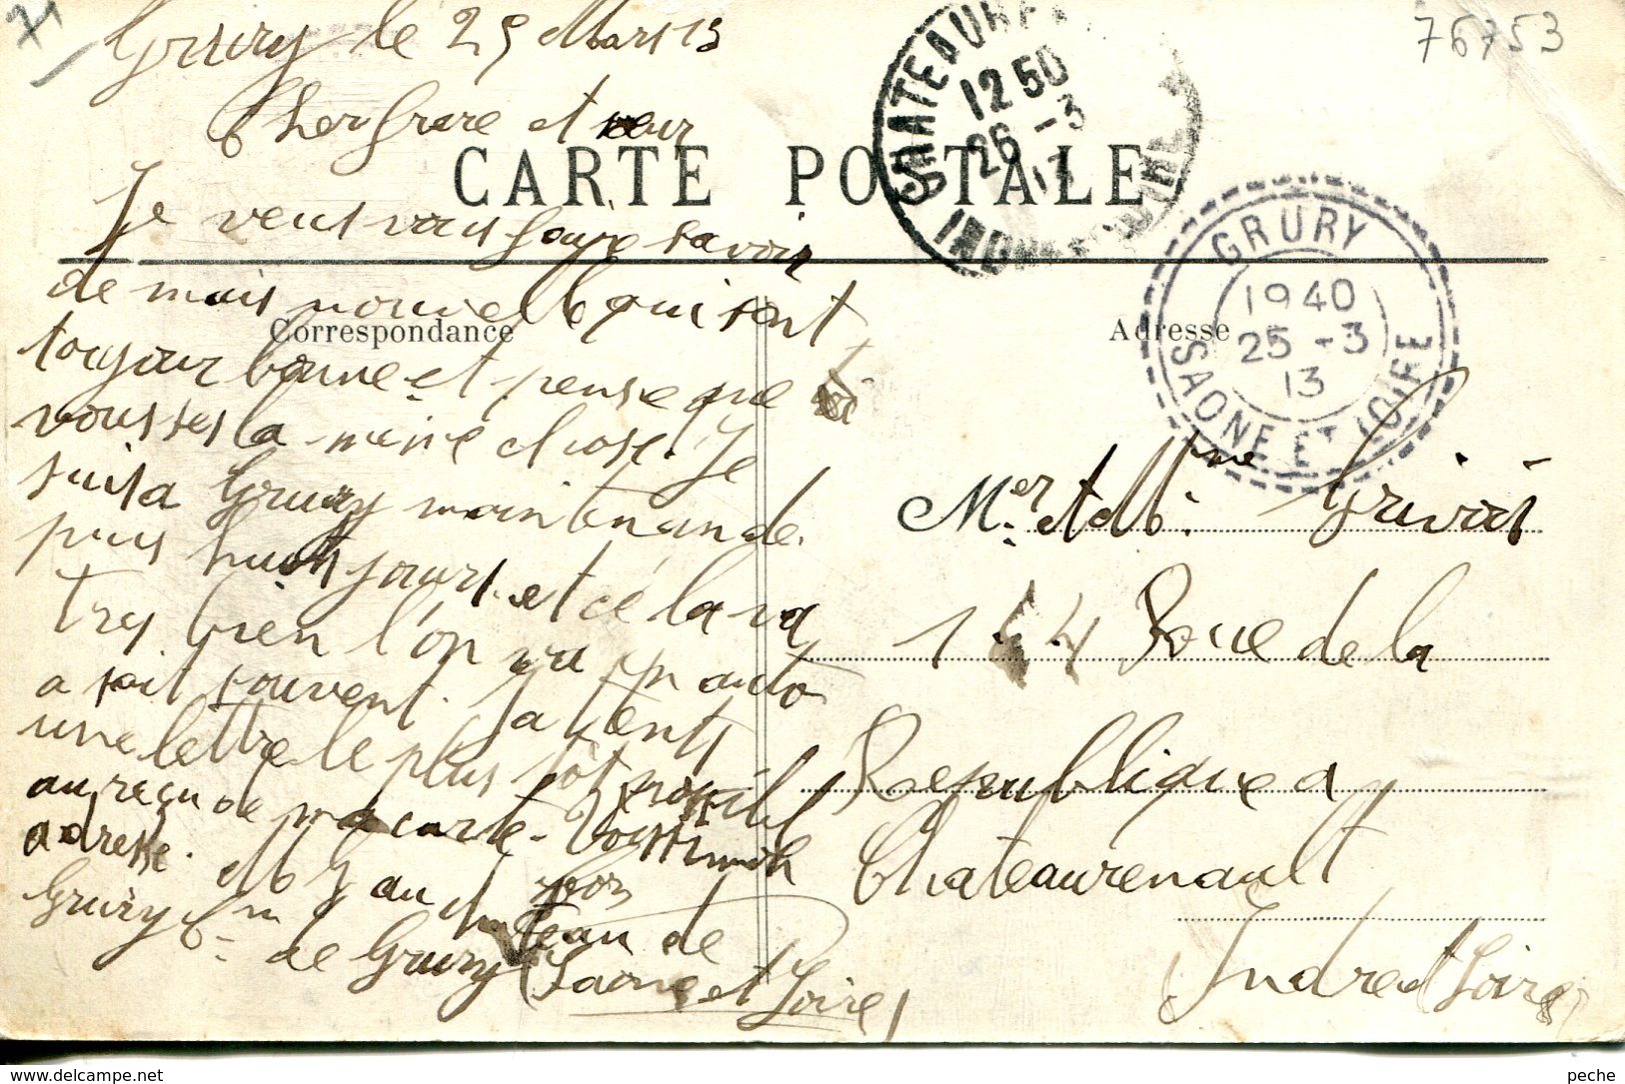 71
76753
Grury le 25 Mars 13
Cher frere et seur
CARTE POSTALE
CHATEAURENAULT
12 50
26 -3
13
GRURY
1940
25 -3
13
SAONE ET LOIRE
Correspondance
Adresse
Je veus vous faire savoir
de mais nouvelle qui sont
toujour bonne et pense que
vous ses la meme chose. Je
suis a Grury maintenan de
puis huit jours et cela va
tres bien l'on va en auto
a sait souvent. Jatents
une lettre le plus tôt possibl
au reçu de ma carte. Voissi mon
adresse.
au chateau de
Grury Cne de Grury (Saone et Loire)
Mer et Mme Grivois
1 4 Roue de la
Republique a
Chateaurenault
Indre et Loire
peche
www.delcampe.net